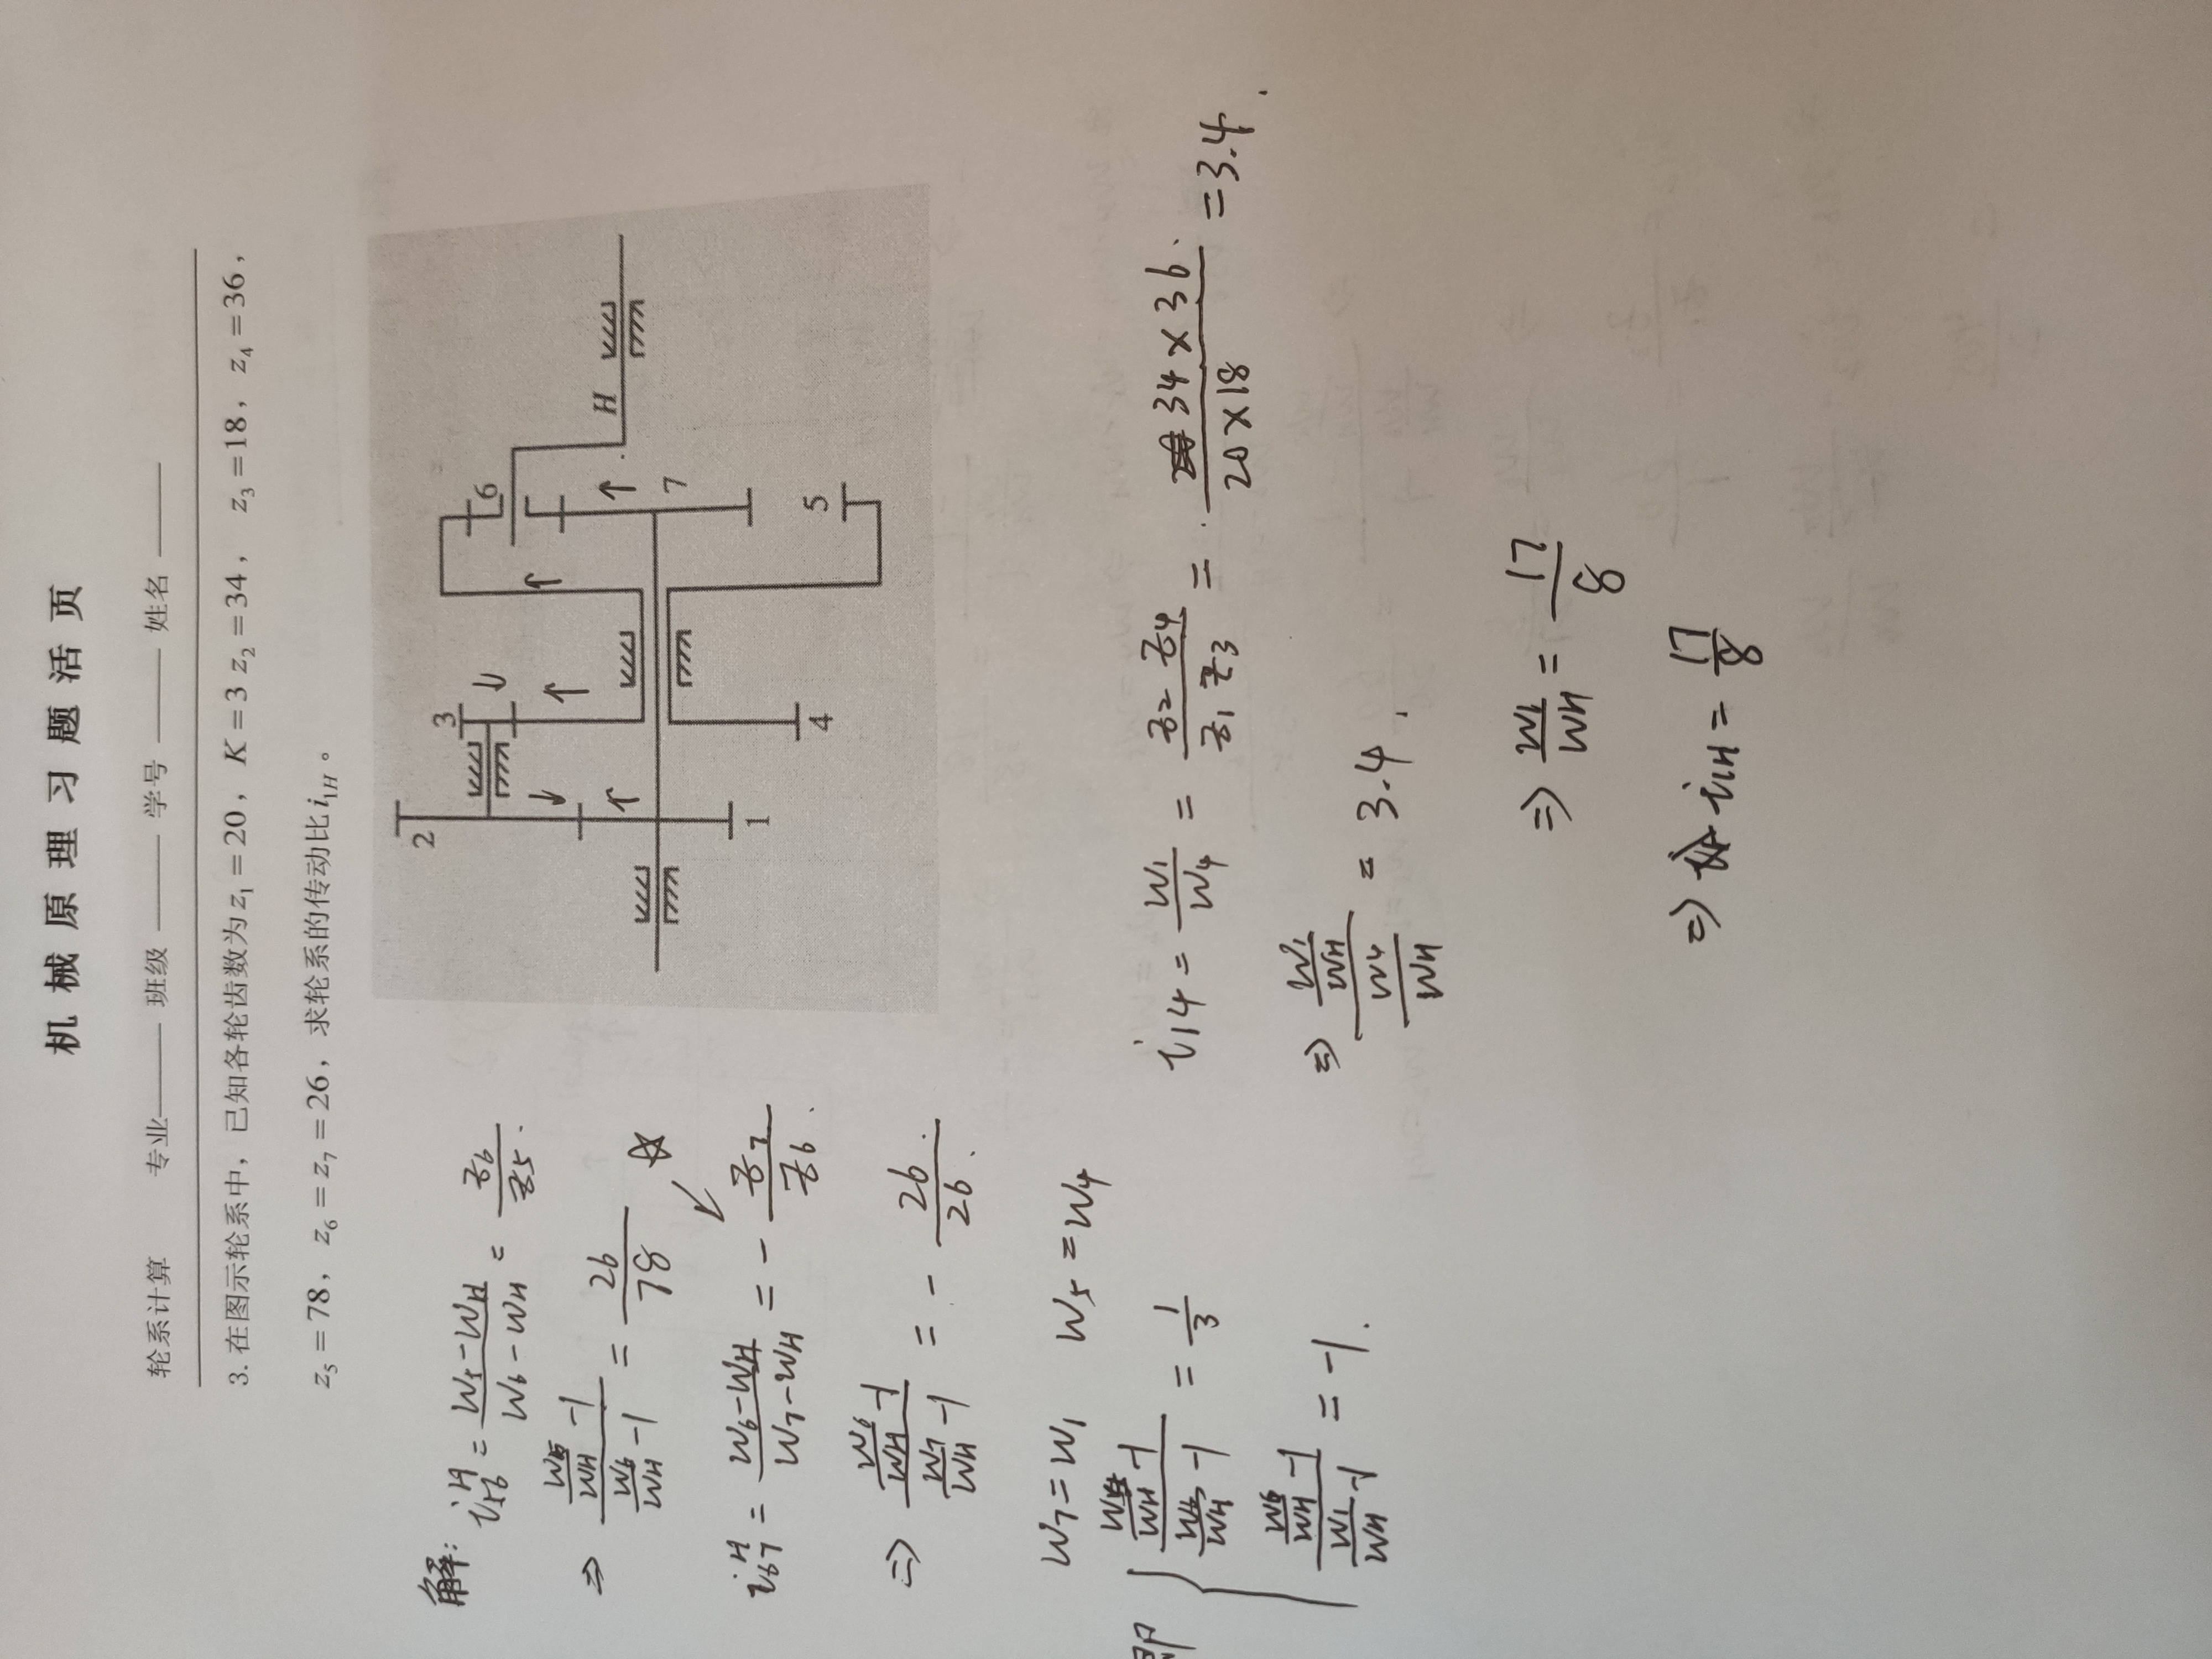 机械原理习题活页
轮系计算 专业 班级 学号 姓名
3. 在图示轮系中，已知各轮齿数为z₁=20，K=3 z₂=34， z₃=18，z₄=36，
z₅=78，z₆=z₇=26，求轮系的传动比i₁H。
2
3
6
1
4
7
5
H
解: i₅₆ᴴ = (w₅-wH)/(w₆-wH) = z₆/z₅.
⇒ (w₅/wH -1)/(w₆/wH -1) = 26/78
i₆₇ᴴ = (w₆-wH)/(w₇-wH) = - z₇/z₆.
⇒ (w₆/wH -1)/(w₇/wH -1) = - 26/26.
w₇=w₁ w₅=w₄
即 { (w₄/wH -1)/(w₆/wH -1) = 1/3
(w₆/wH -1)/(w₁/wH -1) = -1.
i₁₄ = w₁/w₄ = z₂z₄/z₁z₃ = 34×36/20×18 =3.4.
⇒ (w₁/wH)/(w₄/wH) = 3.4.
⇒ w₁/wH = 17/8
⇒ i₁H = 17/8